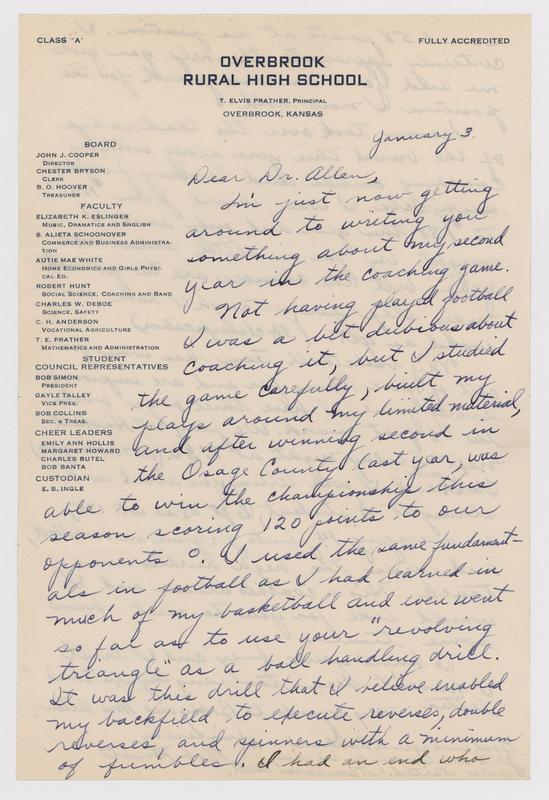 CLASS "A"
FULLY ACCREDITED
OVERBROOK
RURAL HIGH SCHOOL
T. ELVIS PRATHER, PRINCIPAL
OVERBROOK, KANSAS
BOARD
JOHN J. COOPER
DIRECTOR
CHESTER BRYSON
CLERK
B. O. HOOVER
TREASURER
FACULTY
ELIZABETH K. ESLINGER
MUSIC, DRAMATICS AND ENGLISH
B. ALIETA SCHOONOVER
COMMERCE AND BUSINESS ADMINISTRA-
TION
AUTIE MAE WHITE
HOME ECONOMICS AND GIRLS PHYSI-
CAL ED.
ROBERT HUNT
SOCIAL SCIENCE, COACHING AND BAND
CHARLES W. DEBOE
SCIENCE, SAFETY
C. H. ANDERSON
VOCATIONAL AGRICULTURE
T. E. PRATHER
MATHEMATICS AND ADMINISTRATION
STUDENT
COUNCIL REPRESENTATIVES
BOB SIMON
PRESIDENT
GAYLE TALLEY
VICE PRES.
BOB COLLINS
SEC. & TREAS.
CHEER LEADERS
EMILY ANN HOLLIS
MARGARET HOWARD
CHARLES BUTEL
BOB BANTA
CUSTODIAN
E. B. INGLE
January 3.
Dear Dr. Allen,
I'm just now getting
around to writing you
something about my second
year in the coaching game.
Not having played football
I was a bit dubious about
coaching it, but I studied
the game carefully, built my
plays around my limited material,
and after winning second in
the Osage County last year, was
able to win the championship this
season scoring 120 points to our
opponents 0. I used the same fundament-
als in football as I had learned in
much of my basketball and even went
so far as to use your "revolving
triangle" as a ball handling drill.
It was this drill that I believe enabled
my backfield to execute reverses, double
reverses, and spinners with a minimum
of fumbles. I had an end who